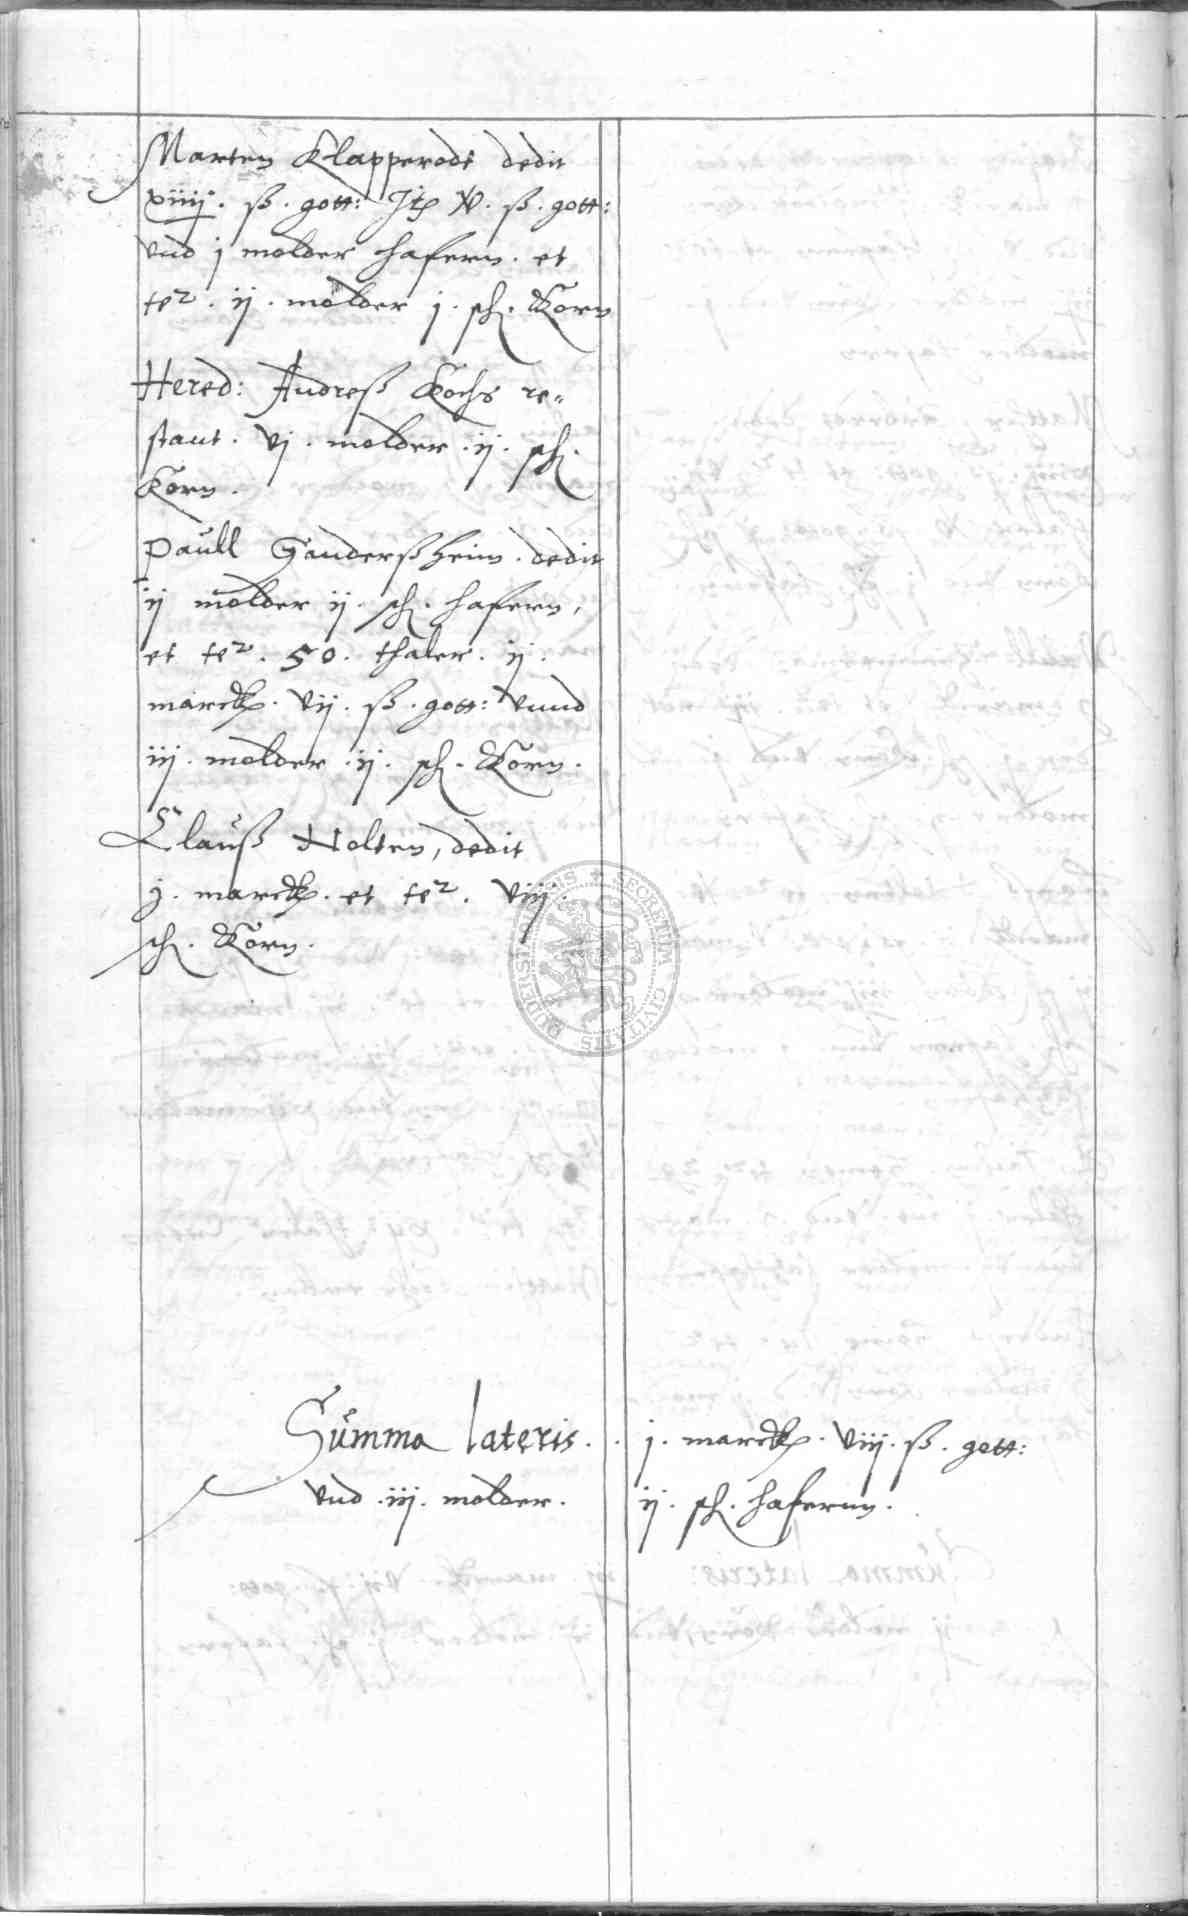 Marten Klapperodt dedit
xiiij. ß. gott: It. X. ß. gott:
vnd j molder hafern. et
te². ij. molder j. sch. Korn
Hered: Andreß Kochs re-
stant. vj. molder. ij. sch.
Korn.
Paull Ganderßheim. dedit
ij molder ij. sch. hafern,
et te². 50. thaler. ij.
marck. vij. ß. gott: vnnd
iij. molder. ij. sch. Korn.
Clauß Nolten, dedit
j. marck. et te². viij.
sch. Korn.
Summa lateris. . j. marck. viij. ß. gott:
vnd .iij. molder. ij. sch. hafernn.
SECRETUM CIVITATIS DUDERSTADENSIS